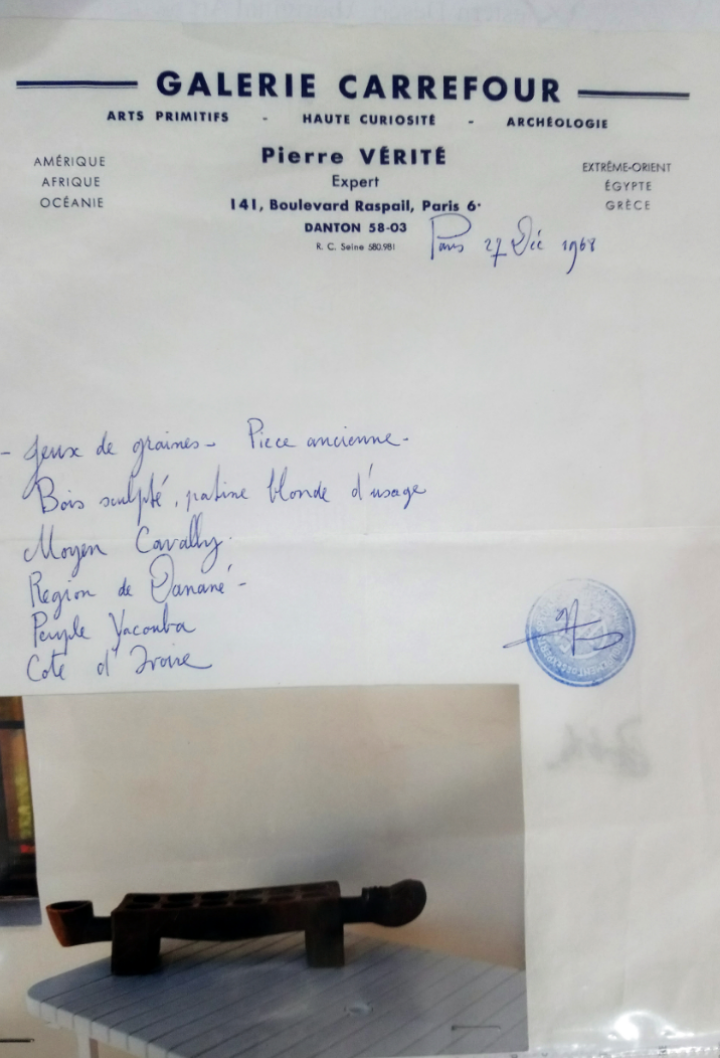 GALERIE CARREFOUR
ARTS PRIMITIFS - HAUTE CURIOSITÉ - ARCHÉOLOGIE
AMÉRIQUE
AFRIQUE
OCÉANIE
Pierre VÉRITÉ
Expert
141, Boulevard Raspail, Paris 6e
DANTON 58-03
R. C. Seine 580.981
EXTRÊME-ORIENT
ÉGYPTE
GRÈCE
Paris 27 Déc 1968
- Jeux de graines - Piece ancienne -
Bois sculpté, patine blonde d'usage
Moyen Cavally.
Region de Danané -
Peuple Yacouba
Cote d'Ivoire